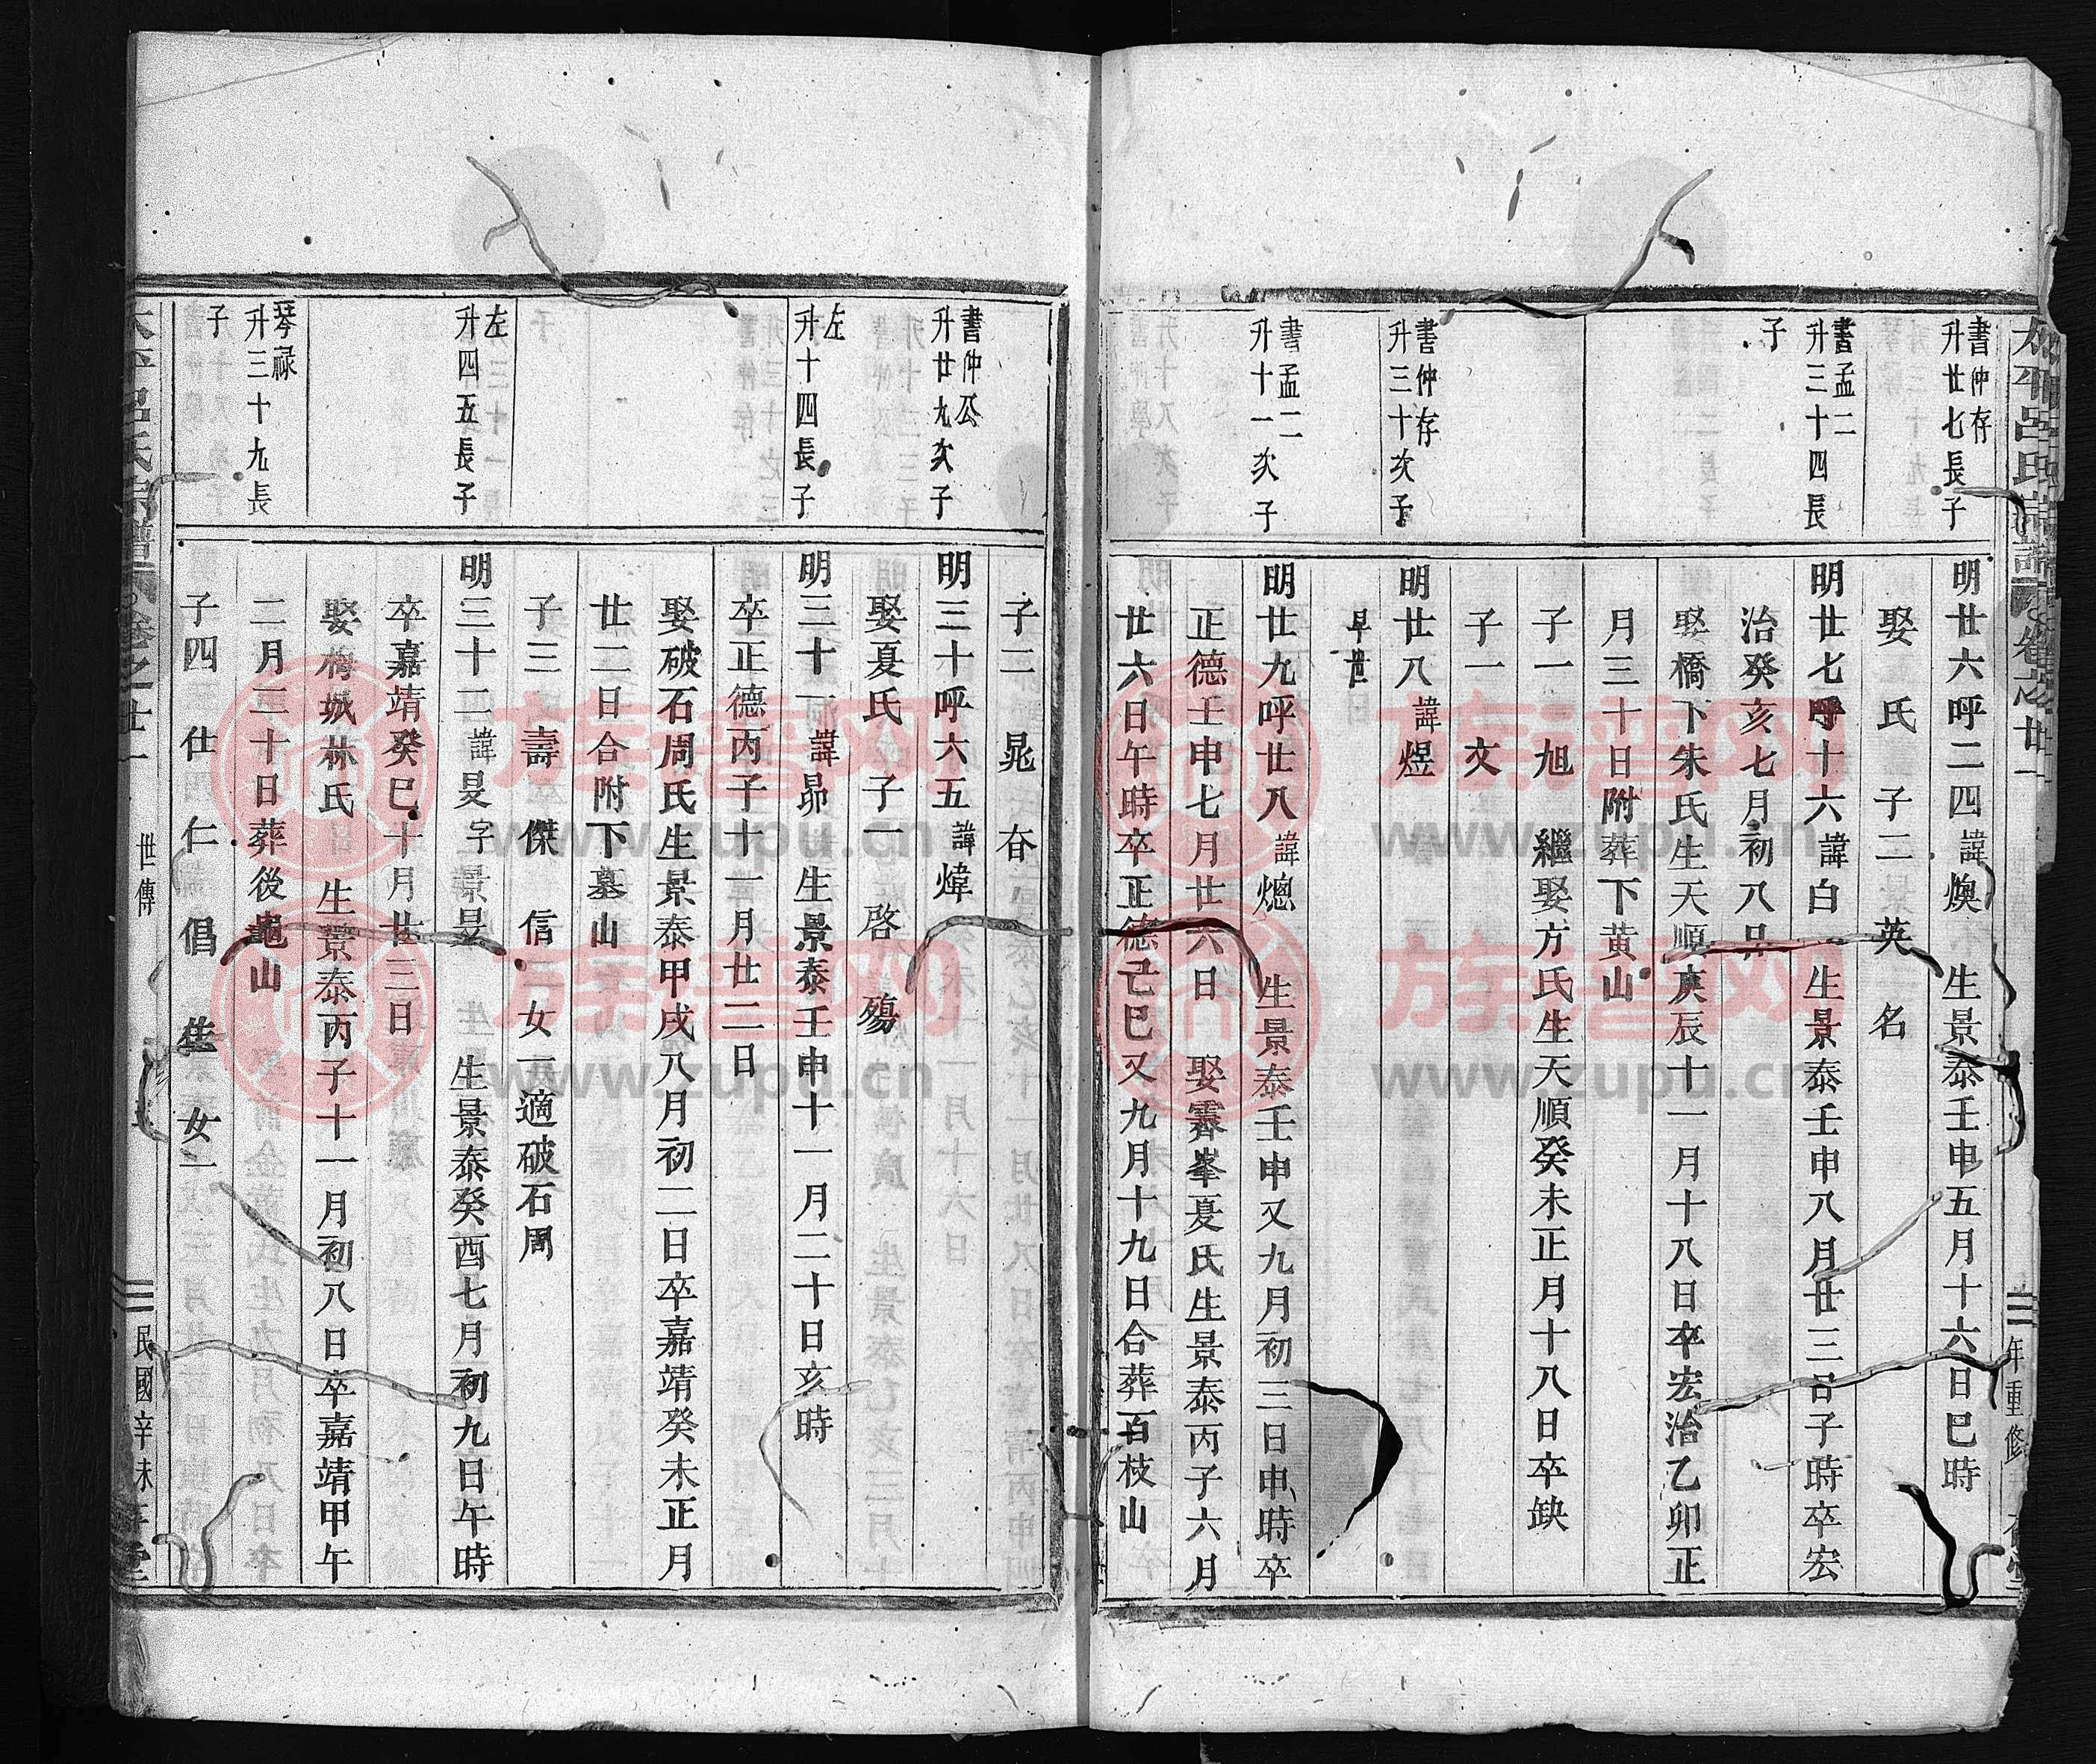 書仲存
升廿七長子
明廿六呼二四諱煥 生景泰壬申五月十六日巳時
娶 氏 子二 英 名
書孟二
升三十四長
子
明廿七呼十六諱白 生景泰壬申八月廿三日子時卒宏
治癸亥七月初八日
娶橋下朱氏生天順庚辰十一月十八日卒宏治乙卯正
月三十日附葬下黄山
子一 旭 繼娶方氏生天順癸未正月十八日卒缺
子一 文
書仲存
升三十次子
明廿八諱煜
早世
書孟二
升十一次子
明廿九呼廿八諱熜 生景泰壬申又九月初三日申時卒
正德壬申七月廿六日 娶霽峯夏氏生景泰丙子六月
廿六日午時卒正德己巳又九月十九日合葬百枝山
子二 晁 㫪
書仲公
升廿九次子
明三十呼六五諱煒
娶夏氏 子一 啓 殤
左
升十四長子
明三十一諱昴 生景泰壬申十一月二十日亥時
卒正德丙子十一月廿二日
娶破石周氏生景泰甲戌八月初二日卒嘉靖癸未正月
廿二日合附下墓山
子三 壽 傑 信 女一 適破石周
左
升四五長子
明三十二諱旻字景昱 生景泰癸酉七月初九日午時
卒嘉靖癸巳十月廿三日
娶梅城林氏 生景泰丙子十一月初八日卒嘉靖甲午
二月三十日葬後龜山
琴祿
升三十九長
子
子四 仕 仁 倡 生 女一
太平呂氏宗譜 卷之廿一
世傳
民國辛未年重修
族譜网
www.zupu.cn
族譜网
www.zupu.cn
族譜网
www.zupu.cn
族譜网
www.zupu.cn